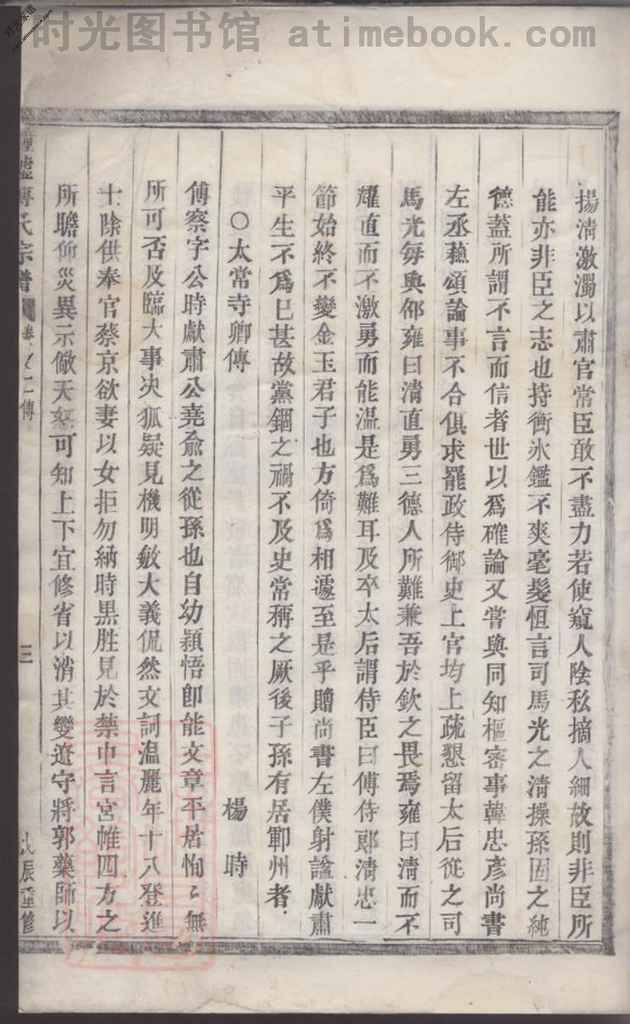 时光图书馆 atimebook.com
揚清激濁以肅官常臣敢不盡力若使窺人陰私摘人細故則非臣所
能亦非臣之志也持衡氷鑑不爽毫髮恒言司馬光之清操孫固之純
德蓋所謂不言而信者世以爲確論又嘗與同知樞密事韓忠彦尚書
左丞蘓頌論事不合俱求罷政侍御史上官均上疏懇留太后從之司
馬光每與邵雍曰清直勇三德人所難兼吾於欽之畏焉雍曰清而不
耀直而不激勇而能温是爲難耳及卒太后謂侍臣曰傅侍郎清忠一
節始終不變金玉君子也方倚爲相遽至是乎贈尚書左僕射謚獻肅
平生不爲已甚故黨錮之禍不及史常稱之厥後子孫有居鄆州者
○太常寺卿傳 楊時
傅察字公時獻肅公堯兪之從孫也自幼穎悟卽能文章平居恂〻無
所可否及臨大事决狐疑見機明敏大義侃然文詞温麗年十八登進
士除供奉官蔡京欲妻以女拒勿納時黒眚見於禁中言宮帷四方之
所瞻仰災異示儆天怒可知上下宜修省以消其變遼守將郭藥師以
傅氏宗譜 卷 二傳 三 戊辰重修